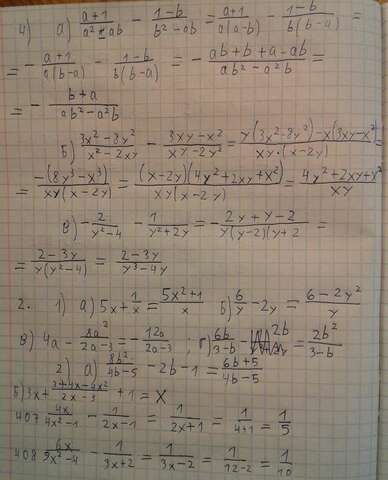 4) а) (a+1)/(a²-ab) - (1-b)/(b²-ab) = (a+1)/(a(a-b)) - (1-b)/(b(b-a)) =
= - (a+1)/(a(b-a)) - (1-b)/(b(b-a)) = - (ab+b+a-ab)/(ab²-a²b) =
= - (b+a)/(ab²-a²b)
б) (3x²-8y²)/(x²-2xy) - (3xy-x²)/(xy-2y²) = (y(3x²-8y²)-x(3xy-x²))/(xy·(x-2y)) =
= (-(8y³-x³))/(xy(x-2y)) = ((x-2y)(4y²+2xy+x²))/(xy(x-2y)) = (4y²+2xy+x²)/(xy)
в) - 2/(y²-4) - 1/(y²+2y) = - (2y+y-2)/(y(y-2)(y+2) =
= (2-3y)/(y(y²-4)) = (2-3y)/(y³-4y)
2. 1) а) 5x + 1/x = (5x²+1)/x б) 6/y - 2y = (6-2y²)/y
в) 4a - 8a²/(2a-3) = - 12a/(2a-3) г) 6b/(3-b) - 2b = 2b²/(3-b)
2) а) 8b²/(4b-5) - 2b - 1 = (6b+5)/(4b-5)
б) 3x + (3+4x-4x²)/(2x-3) + 1 = x
407 4x/(4x²-1) - 1/(2x-1) = 1/(2x+1) = 1/(4+1) = 1/5
408 6x/(9x²-4) - 1/(3x+2) = 1/(3x-2) = 1/(12-2) = 1/10